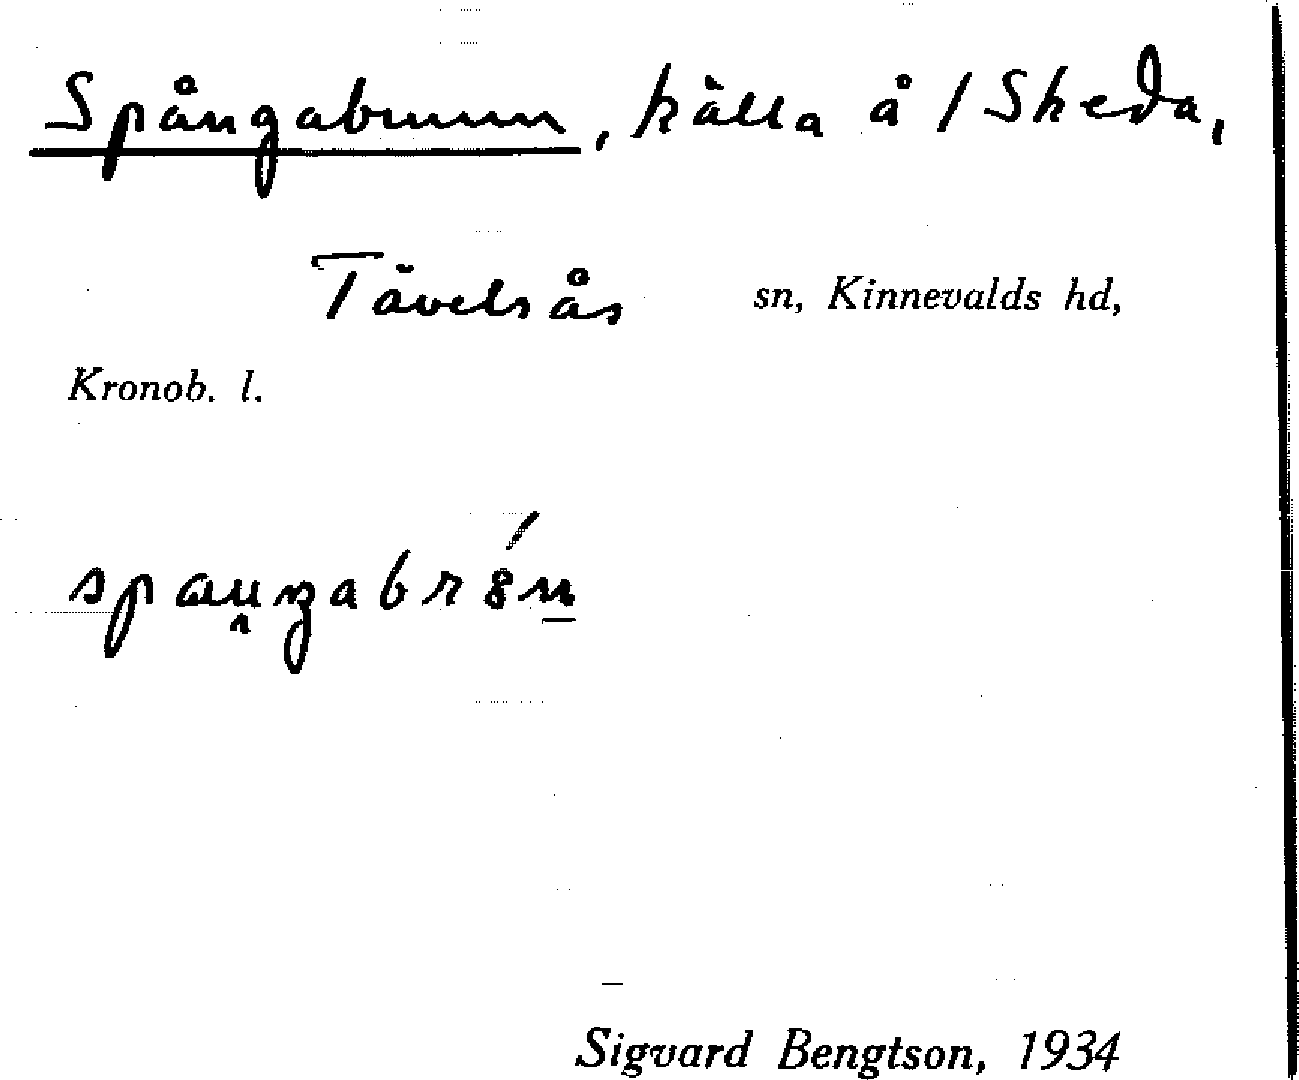 Spångabrunn, källa å /Skeda,
Tävelsås sn, Kinnevalds hd,
Kronob. l.
Sigvard Bengtson, 1934